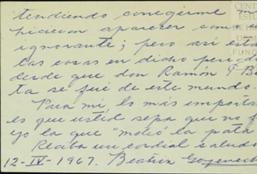 tendiendo corregirme
hicieron aparecer como
ignorante; pero así está
las cosas en dicho
desde que don Ramón
ta se fué de este mundo.
Para mí, lo más
es que usted sepa que no
yo la que "metió la pata
Reciba un cordial saludo
12-IV-1967. Beatriz
CEN
DE